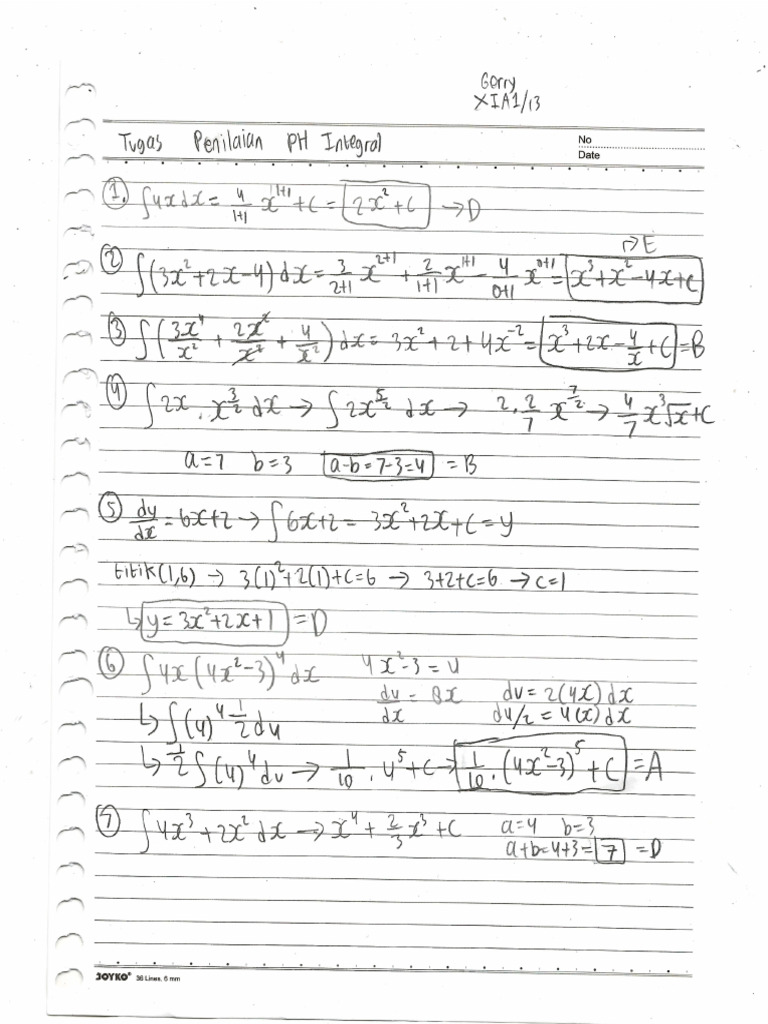 Gerry
XIA1/13
Tugas Penilaian PH Integral
No
Date
① ∫4x dx = 4/(1+1) x^(1+1) + C = 2x² + C → D
→ E
② ∫(3x² + 2x - 4) dx = 3/(2+1) x^(2+1) + 2/(1+1) x^(1+1) - 4/(0+1) x^(0+1) = x³ + x² - 4x + C
③ ∫(3x⁴/x² + 2x²/x² + 4/x²) dx = 3x² + 2 + 4x^(-2) = x³ + 2x - 4/x + C = B
④ ∫2x . x^(3/2) dx → ∫2x^(5/2) dx → 2 . 2/7 x^(7/2) → 4/7 x³√x + C
a = 7 b = 3 a-b = 7-3 = 4 = B
⑤ dy/dx = 6x + 2 → ∫6x + 2 = 3x² + 2x + C = y
titik (1,6) → 3(1)² + 2(1) + C = 6 → 3 + 2 + C = 6 → C = 1
↳ y = 3x² + 2x + 1 = D
⑥ ∫4x (4x² - 3)⁴ dx 4x² - 3 = u
du/dx = 8x du = 2(4x) dx
↳ ∫(u)⁴ 1/2 du du/2 = 4(x) dx
↳ 1/2 ∫(u)⁴ du → 1/10 . u⁵ + C → 1/10 . (4x² - 3)⁵ + C = A
⑦ ∫4x³ + 2x² dx → x⁴ + 2/3 x³ + C a = 4 b = 3
a + b = 4 + 3 = 7 = D
JOYKO® 36 Lines, 6 mm